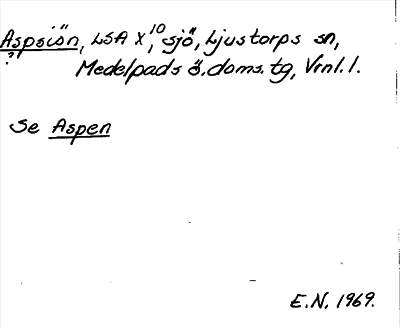 Aspsiön, LSA X, 10 sjö, Ljustorps sn,
? Medelpads ö. doms. tg, Vrnl. l.
Se Aspen
E.N. 1969.